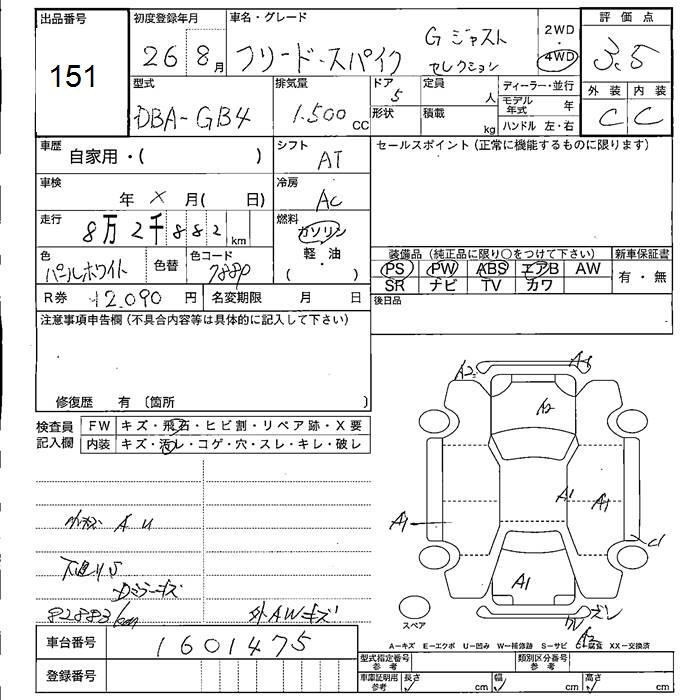 出品番号 初度登録年月 車名・グレード 2WD・4WD 評価点
151 26 8月 フリード・スパイク Gジャスト セレクション 3.5
型式 排気量 ドア 定員 ディーラー・並行 外装 内装
DBA-GB4 1.500cc 5 人 モデル年式 年 C C
形状 積載 kg ハンドル 左・右
車歴 自家用・( ) シフト AT セールスポイント(正常に機能するものに限ります)
車検 年 × 月( 日) 冷房 AC
走行 8万2千882km 燃料 ガソリン・軽油 ( )
色 パールホワイト 色替 色コード 7880
装備品(純正品に限り○をつけて下さい) 新車保証書
PS PW ABS エアB AW 有・無
SR ナビ TV カワ
R券 12.090円 名変期限 月 日 後日品
注意事項申告欄(不具合内容等は具体的に記入して下さい)
修復歴 有〔箇所 〕
検査員記入欄 FW キズ・飛石・ヒビ割・リペア跡・X要
内装 キズ・汚レ・コゲ・穴・スレ・キレ・破レ
A2 A1
A2
A1 A1 A1
A1
小キズ A U
下廻りS
Dミラーキズ
82883km 外AWキズ
スペア
A=キズ E=エクボ U=凹み W=補修跡 S=サビ C=腐食 XX=交換済
車台番号 1601475
登録番号
型式指定番号参考 類別区分番号参考
車庫証明用参考 長さ cm 幅 cm 高さ cm